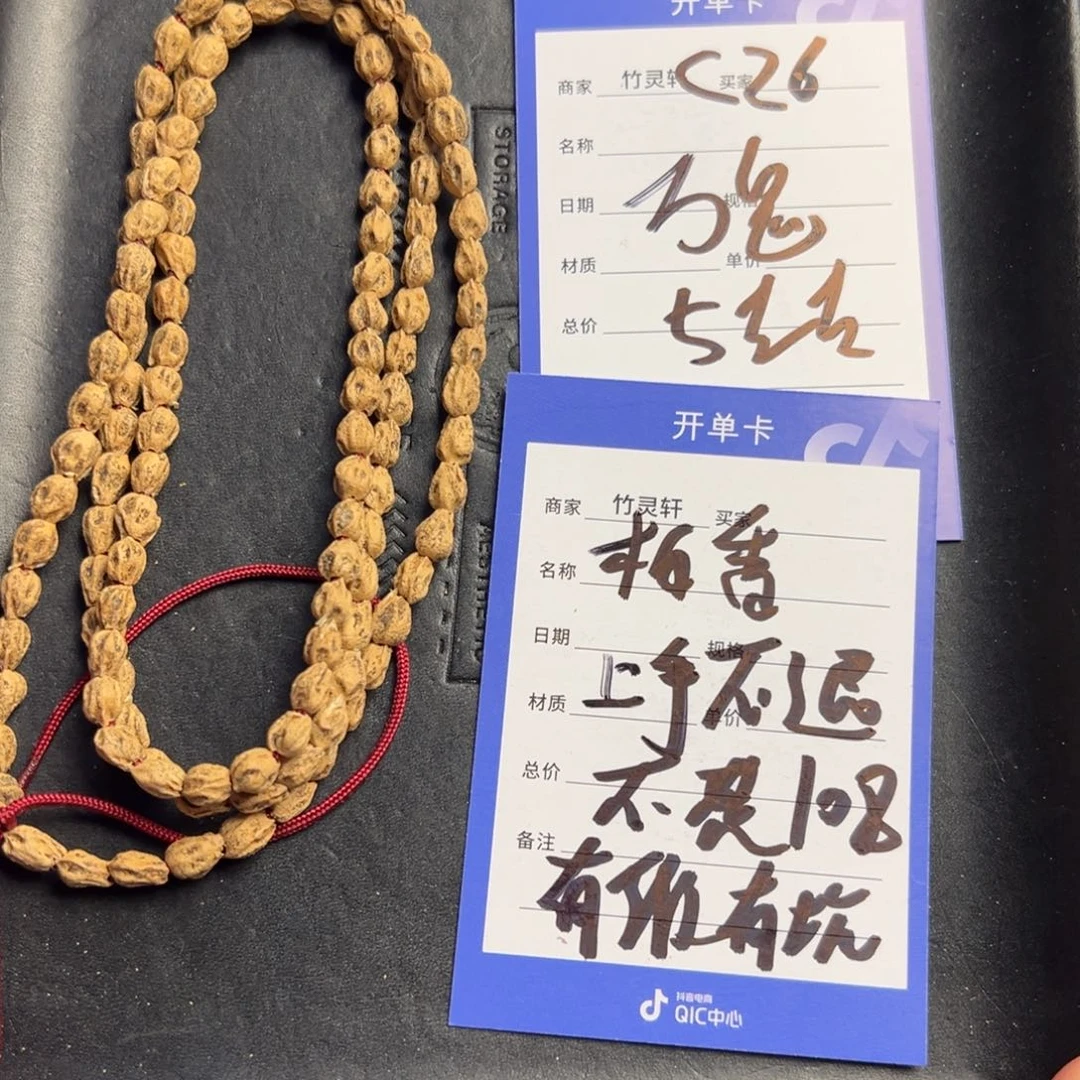 开单卡
商家 竹灵轩 买家
C26
名称
日期 规格
材质 单价
总价
STORAGE
开单卡
商家 竹灵轩 买家
名称 柏香
日期 规格
上手不退
材质 单价
总价
不是108
备注
有 有坑
抖音电商
QIC中心